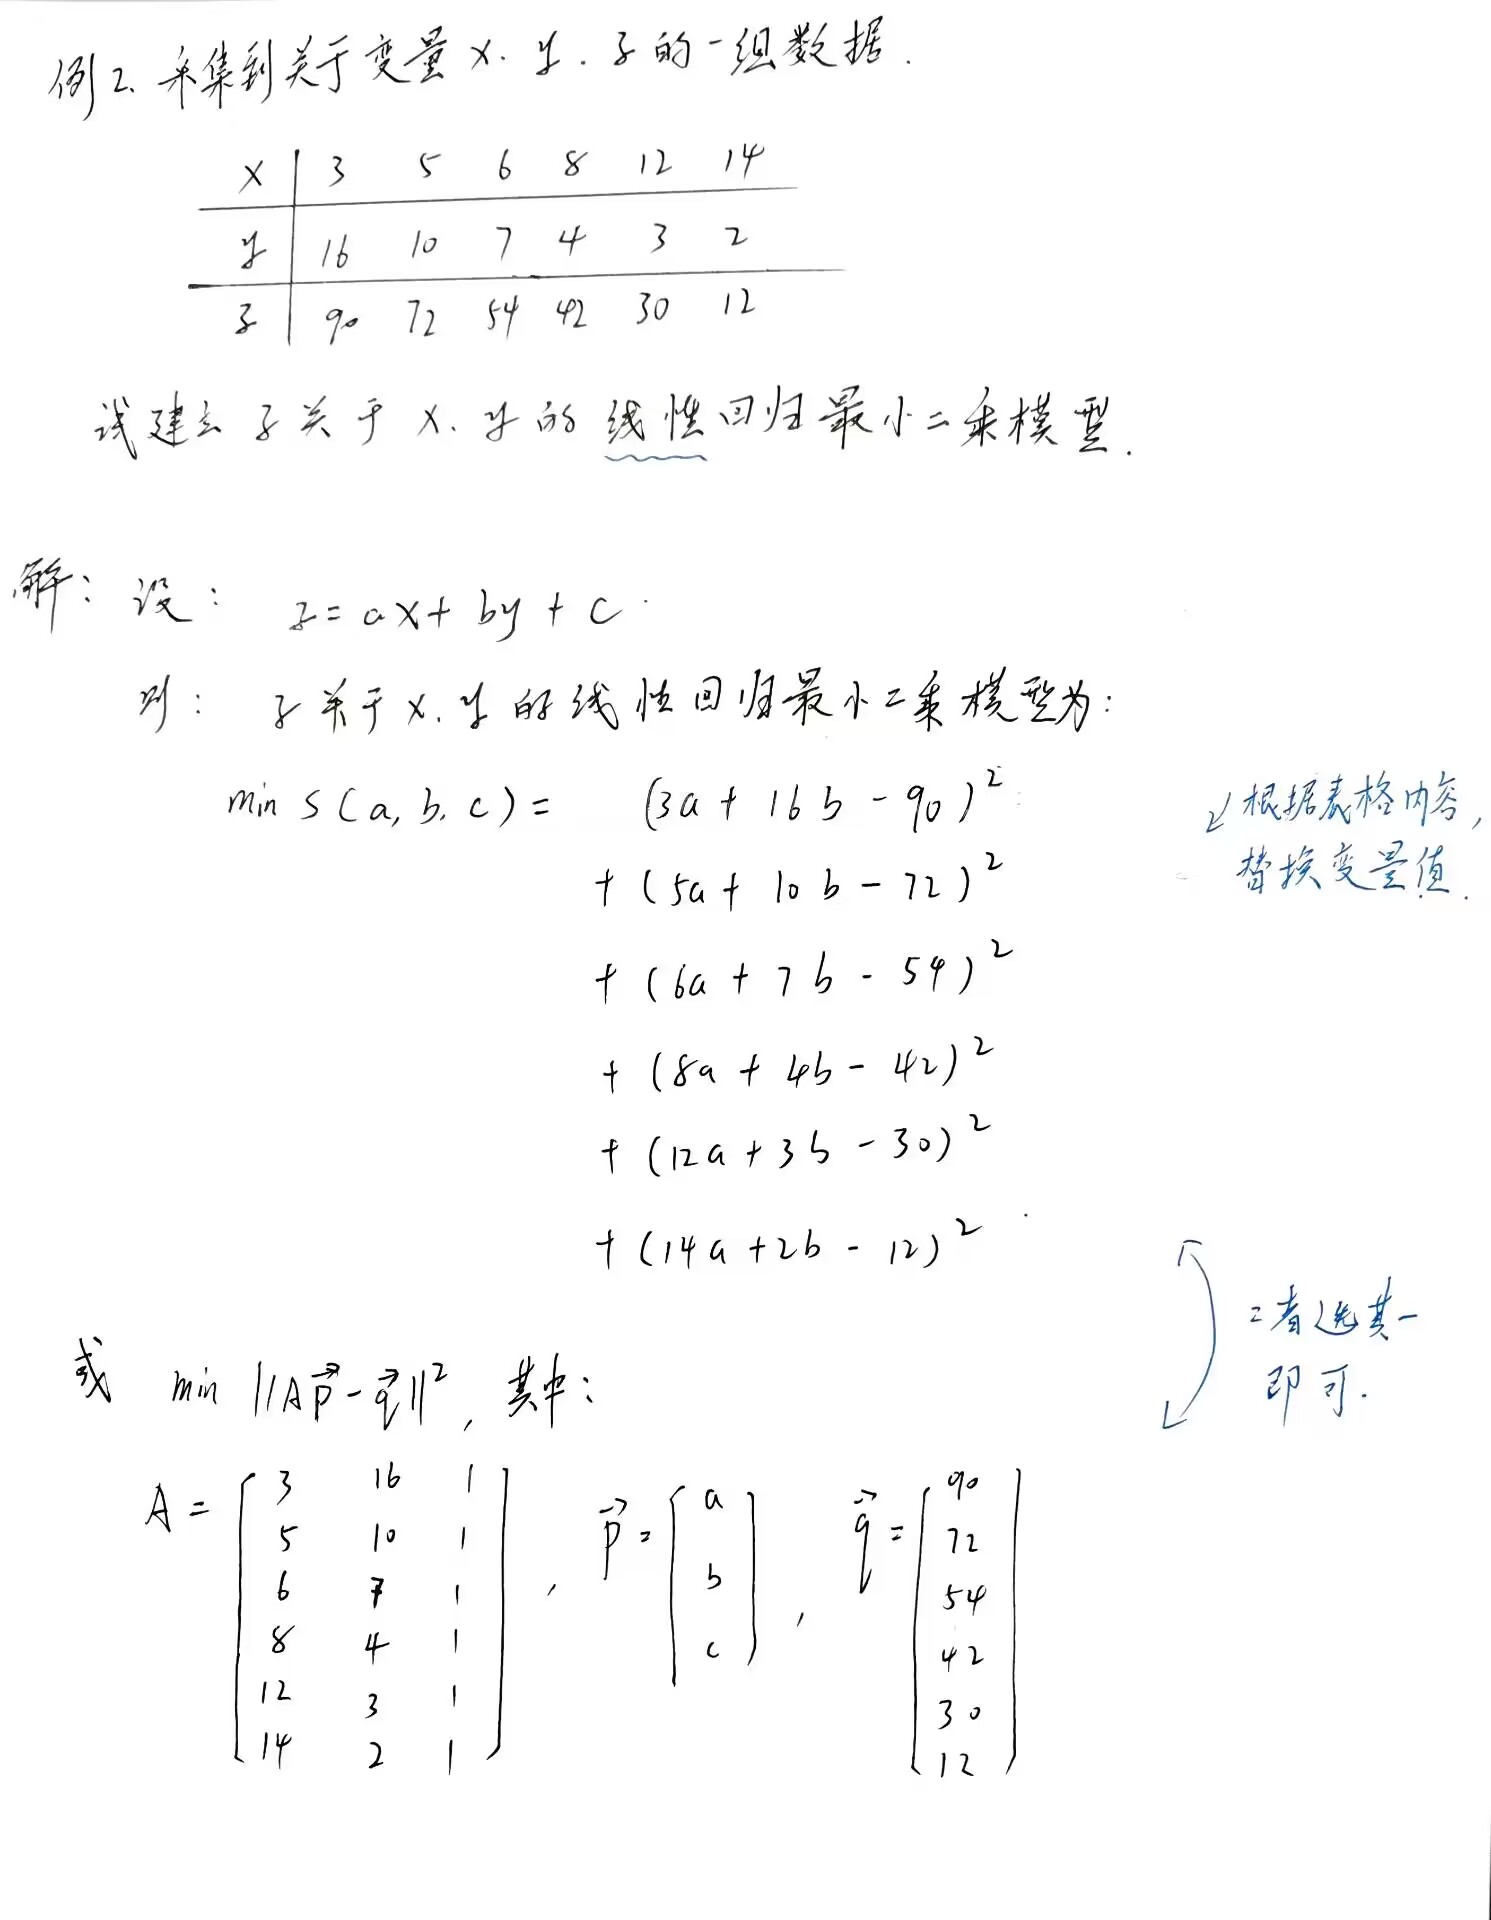 例2. 采集到关于变量 x. y. z 的一组数据.
x 3 5 6 8 12 14
y 16 10 7 4 3 2
z 90 72 54 42 30 12
试建立 z 关于 x. y 的线性回归最小二乘模型.
解: 设: z = ax + by + c.
则: z 关于 x. y 的线性回归最小二乘模型为:
min S(a, b, c) = (3a + 16b - 90)²
+ (5a + 10b - 72)²
+ (6a + 7b - 54)²
+ (8a + 4b - 42)²
+ (12a + 3b - 30)²
+ (14a + 2b - 12)²
↙根据表格内容,
替换变量值.
二者选其一
即可.
或 min ||Ap⃗ - q⃗||², 其中:
A = [3 16 1; 5 10 1; 6 7 1; 8 4 1; 12 3 1; 14 2 1], p⃗ = [a; b; c], q⃗ = [90; 72; 54; 42; 30; 12]